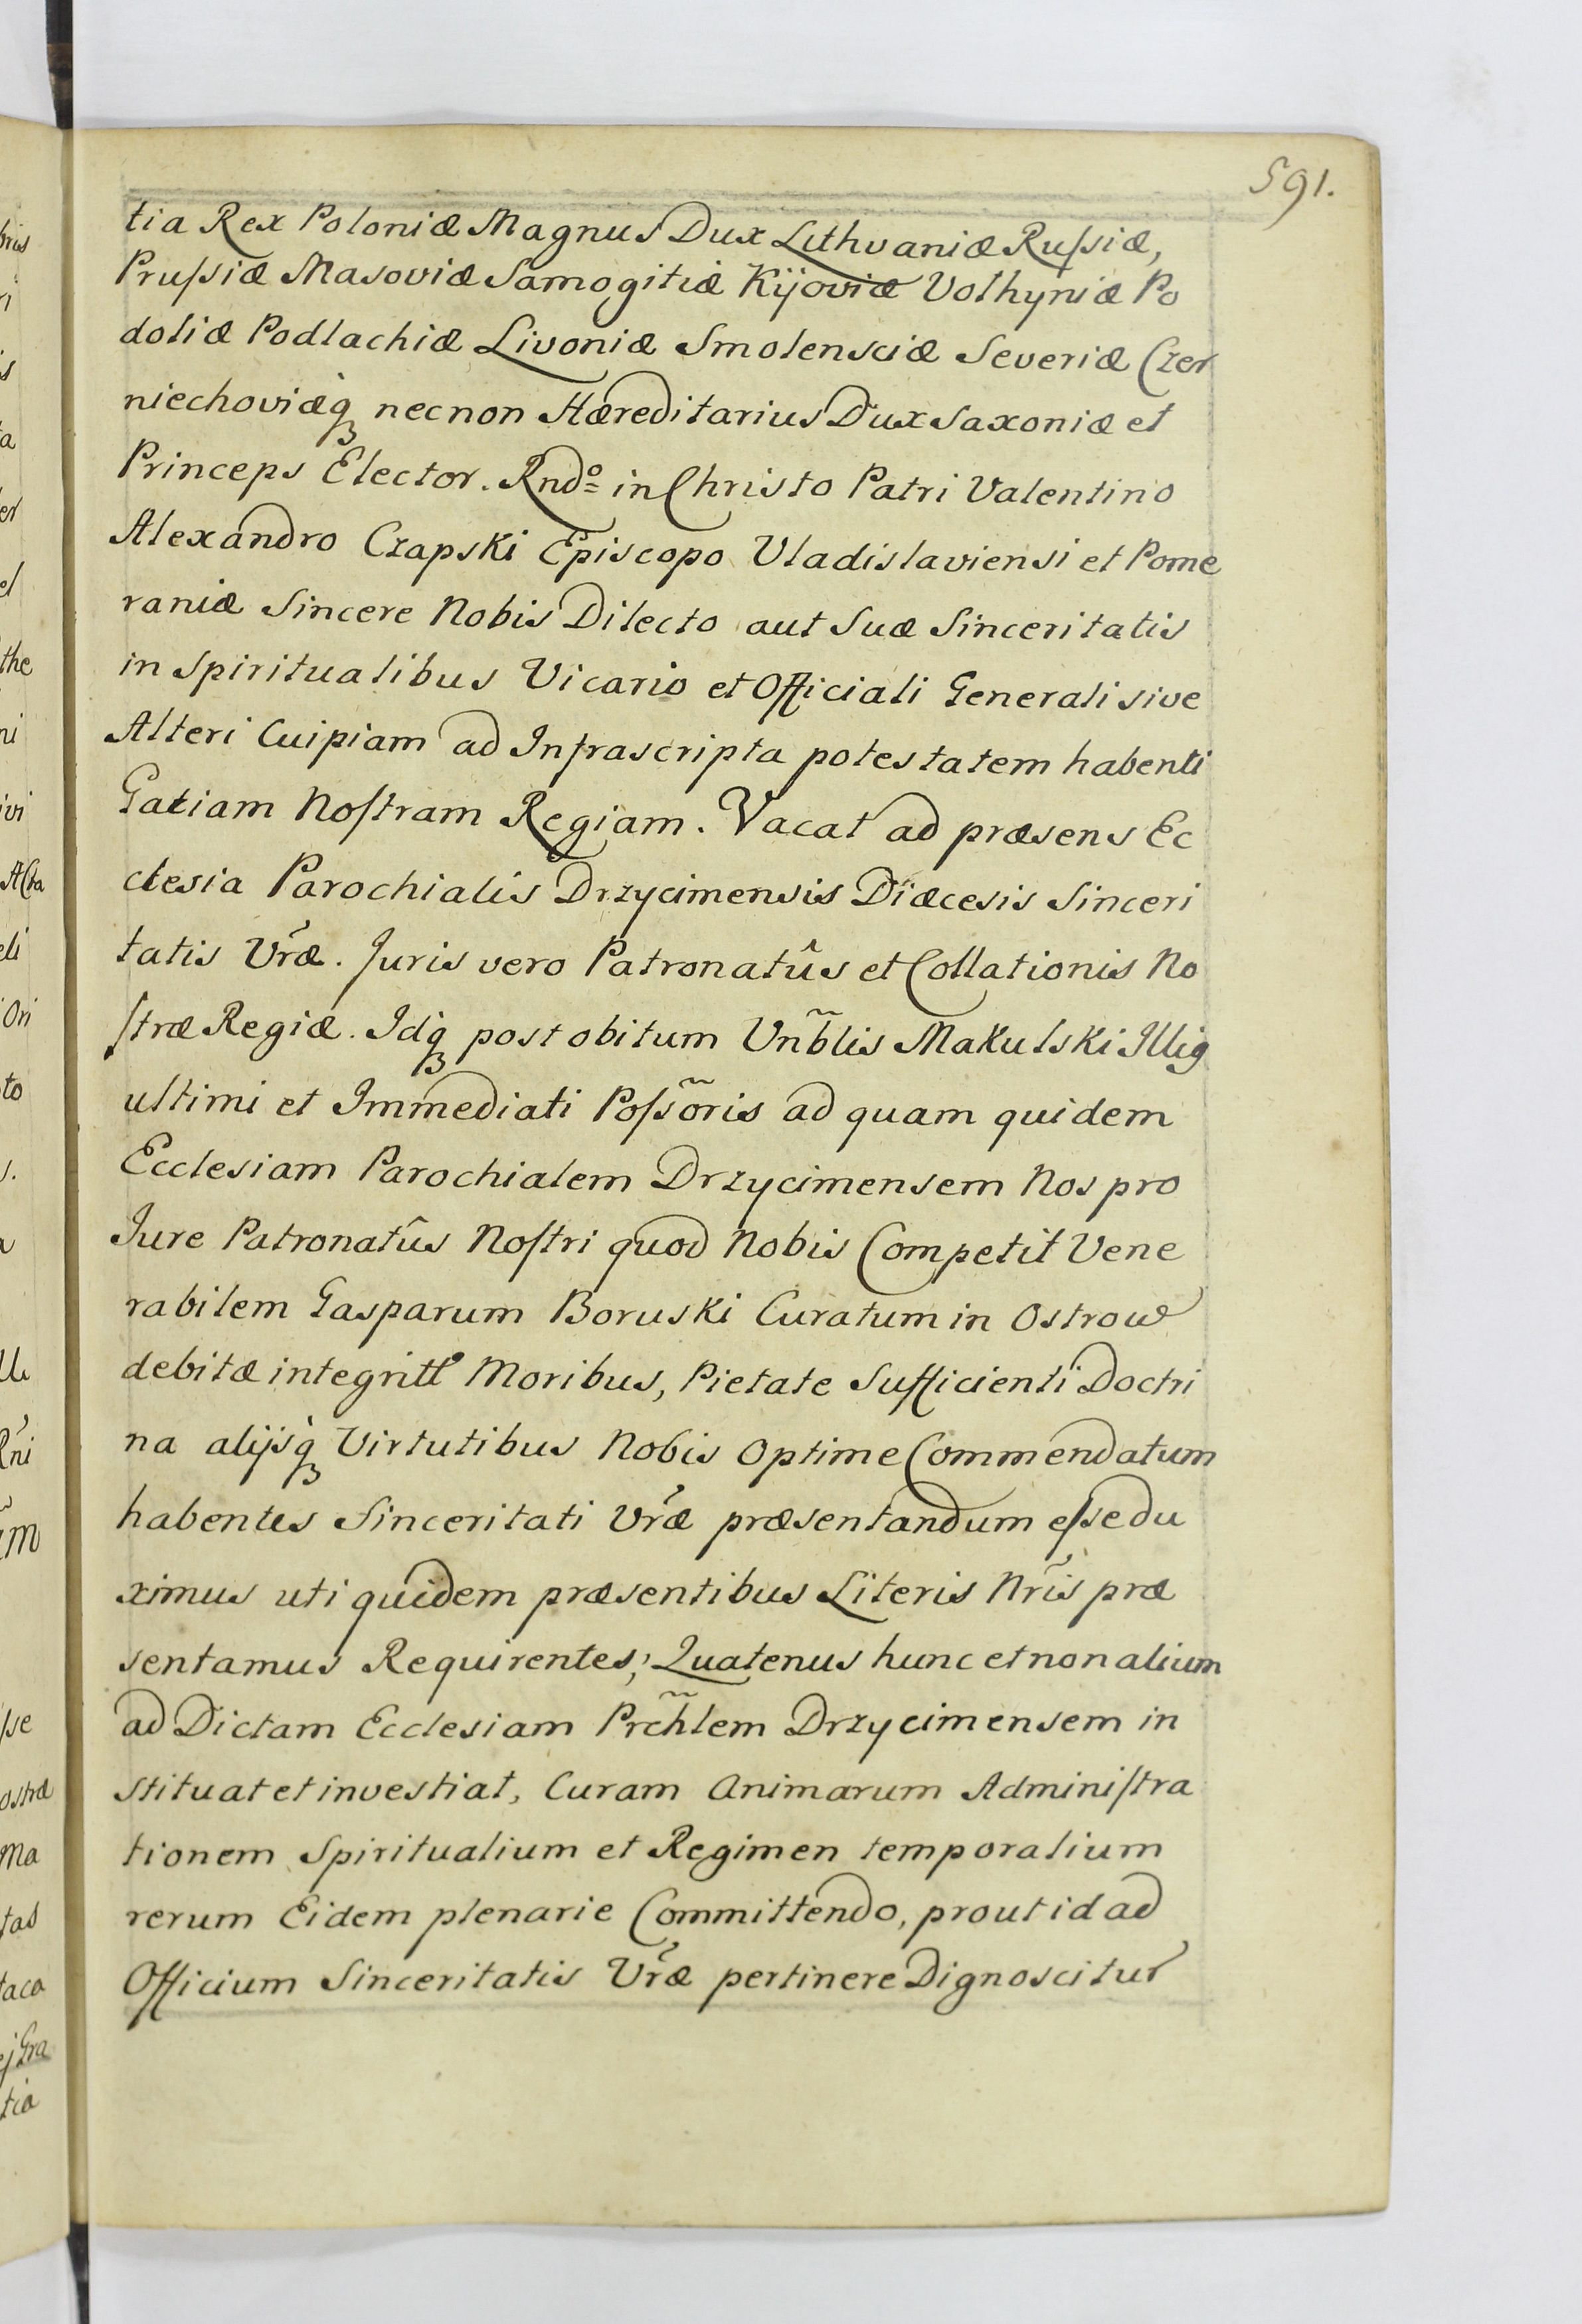 591.
tia Rex Poloniæ Magnus Dux Lithvaniæ Rußiæ,
Prußiæ Masoviæ Samogitiæ Kijoviæ Volhyniæ Po
doliæ Podlachiæ Livoniæ Smolensciæ Severiæ Czer
niechoviæq̀ꝫ necnon Hæreditarius Dux Saxoniæ et
Princeps Elector. Rndo in Christo Patri Valentino
Alexandro Czapski Episcopo Vladislaviensi et Pome
raniæ Sincere Nobis Dilecto aut Suæ Sinceritatis
in Spiritualibus Vicario et Officiali Generali sive
Alteri Cuipiam ad Infrascripta potestatem habenti
Gatiam Nostram Regiam. Vacat ad præsens Ec
clesia Parochialis Drzycimensis Diæcesis Sinceri
tatis Vr̃æ. Juris vero Patronatûs et Collationis No
stræ Regiæ. Idq̀ꝫ post obitum Vnb̃lis Makulski Illig
ultimi et Immediati Poßõris ad quam quidem
Ecclesiam Parochialem Drzycimensem Nos pro
Jure Patronatûs Nostri quod Nobis Competit Vene
rabilem Gasparum Boruski Curatum in Ostrow
debitæ integritt Moribus, Pietate Sufficienti Doctri
na alijsq̀ꝫ Virtutibus Nobis Optime Commendatum
habentes Sinceritati Vr̃æ præsentandum eße du
ximus uti quidem præsentibus Literis Nr̃is præ
sentamus Requirentes; Quatenus hunc et non alium
ad Dictam Ecclesiam Prc̃hlem Drzycimensem in
stituat et investiat, Curam Animarum Administra
tionem Spiritualium et Regimen temporalium
rerum Eidem plenarie Committendo, prout id ad
Officium Sinceritatis Vr̃æ pertinere Dignoscitur